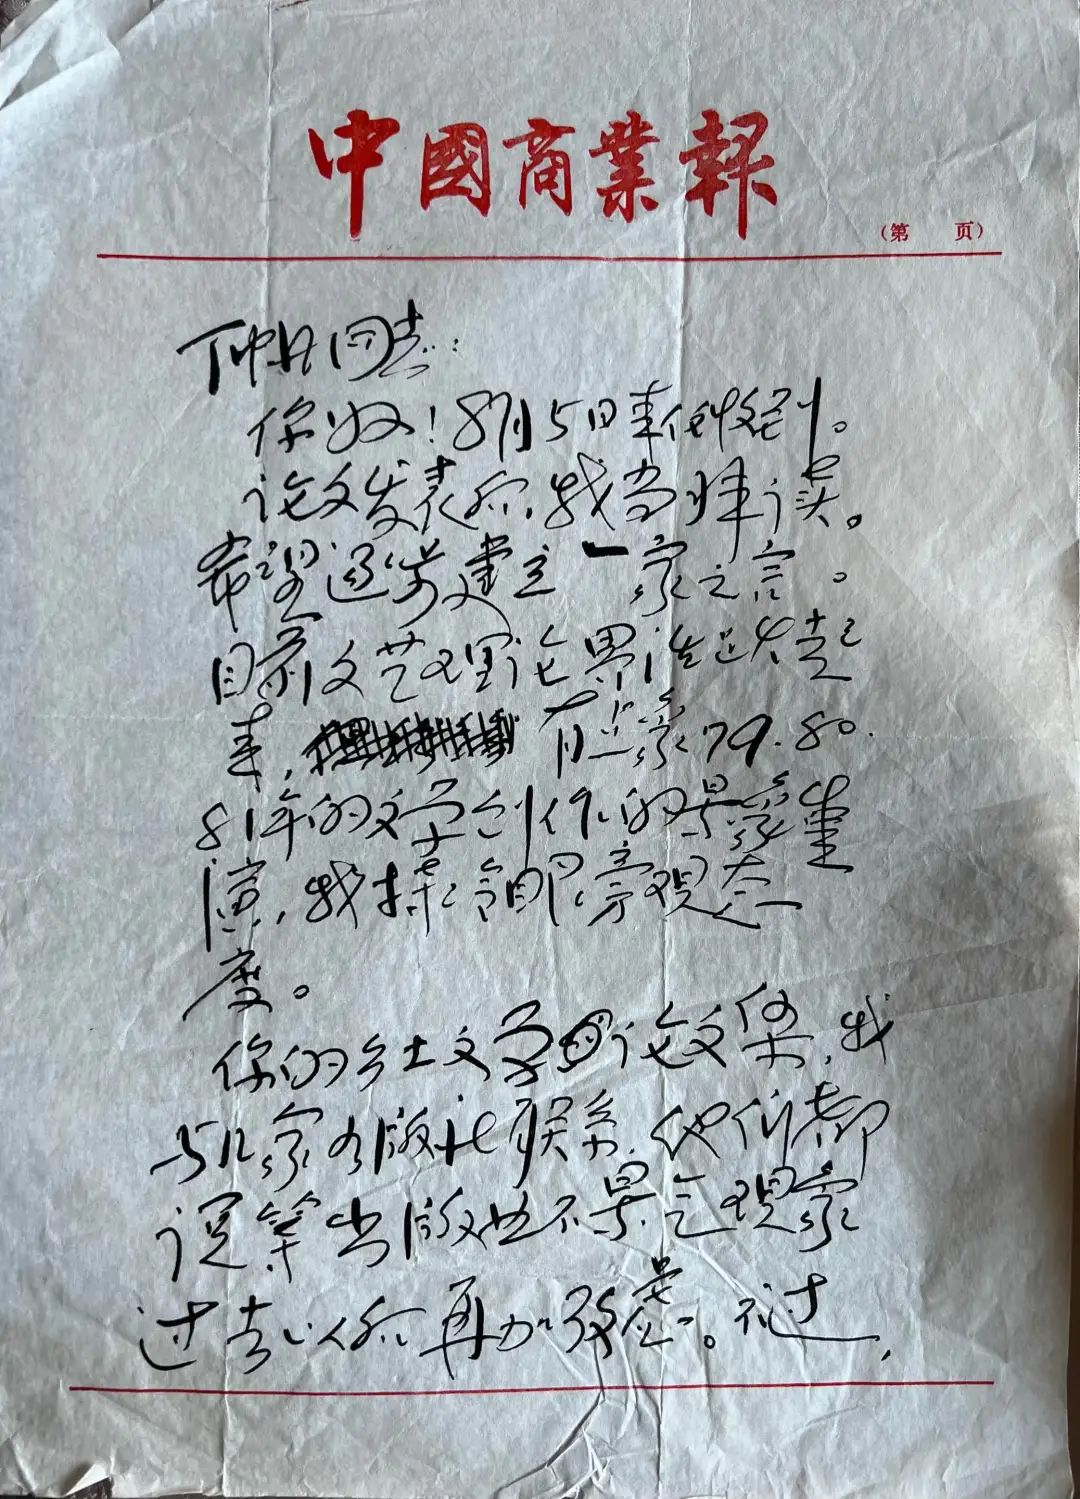 中國商業報
(第 页)
丁仲甘同志:
你好!8月5日来信收到。
论文发表后,我当拜读。
希望逐步建立一家之言。
目前文艺理论界活跃起
来,有点象79.80.
81年的文学创作的景象重
演,我持冷眼旁观态
度。
你的乡土文学论文集,我
与几家出版社联系,他们都
说等出版业不景气现象
过去以后再加考虑。不过,